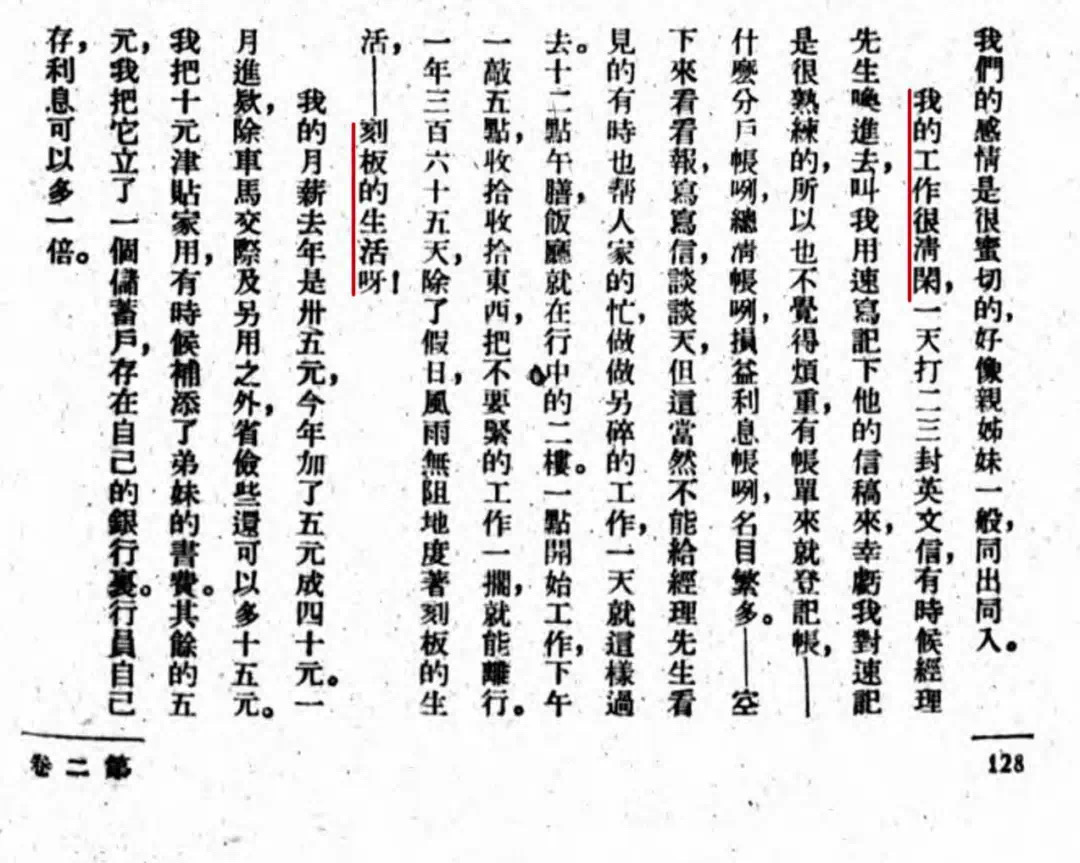 我們的感情是很蜜切的，好像親姊妹一般，同出同入。
我的工作很清閑，一天打二三封英文信，有時候經理
先生喚進去，叫我用速寫記下他的信稿來，幸虧我對速記
是很熟練的，所以也不覺得煩重，有帳單來就登記帳，——
什麽分戶帳咧，總清帳咧，損益利息帳咧，名目繁多。——空
下來看看報，寫寫信，談談天，但這當然不能給經理先生看
見的有時也帮人家的忙，做做另碎的工作，一天就這樣過
去。十二點午膳，飯廳就在行中的二樓。一點開始工作，下午
一敲五點，收拾收拾東西，把不要緊的工作一擱，就能離行。
一年三百六十五天，除了假日，風雨無阻地度著刻板的生
活，——刻板的生活呀！
我的月薪去年是卅五元，今年加了五元成四十元。一
月進欵，除車馬交際及另用之外，省儉些還可以多十五元。
我把十元津貼家用，有時候補添了弟妹的書費。其餘的五
元，我把它立了一個儲蓄戶，存在自己的銀行裏。行員自己
存，利息可以多一倍。
128
第二卷